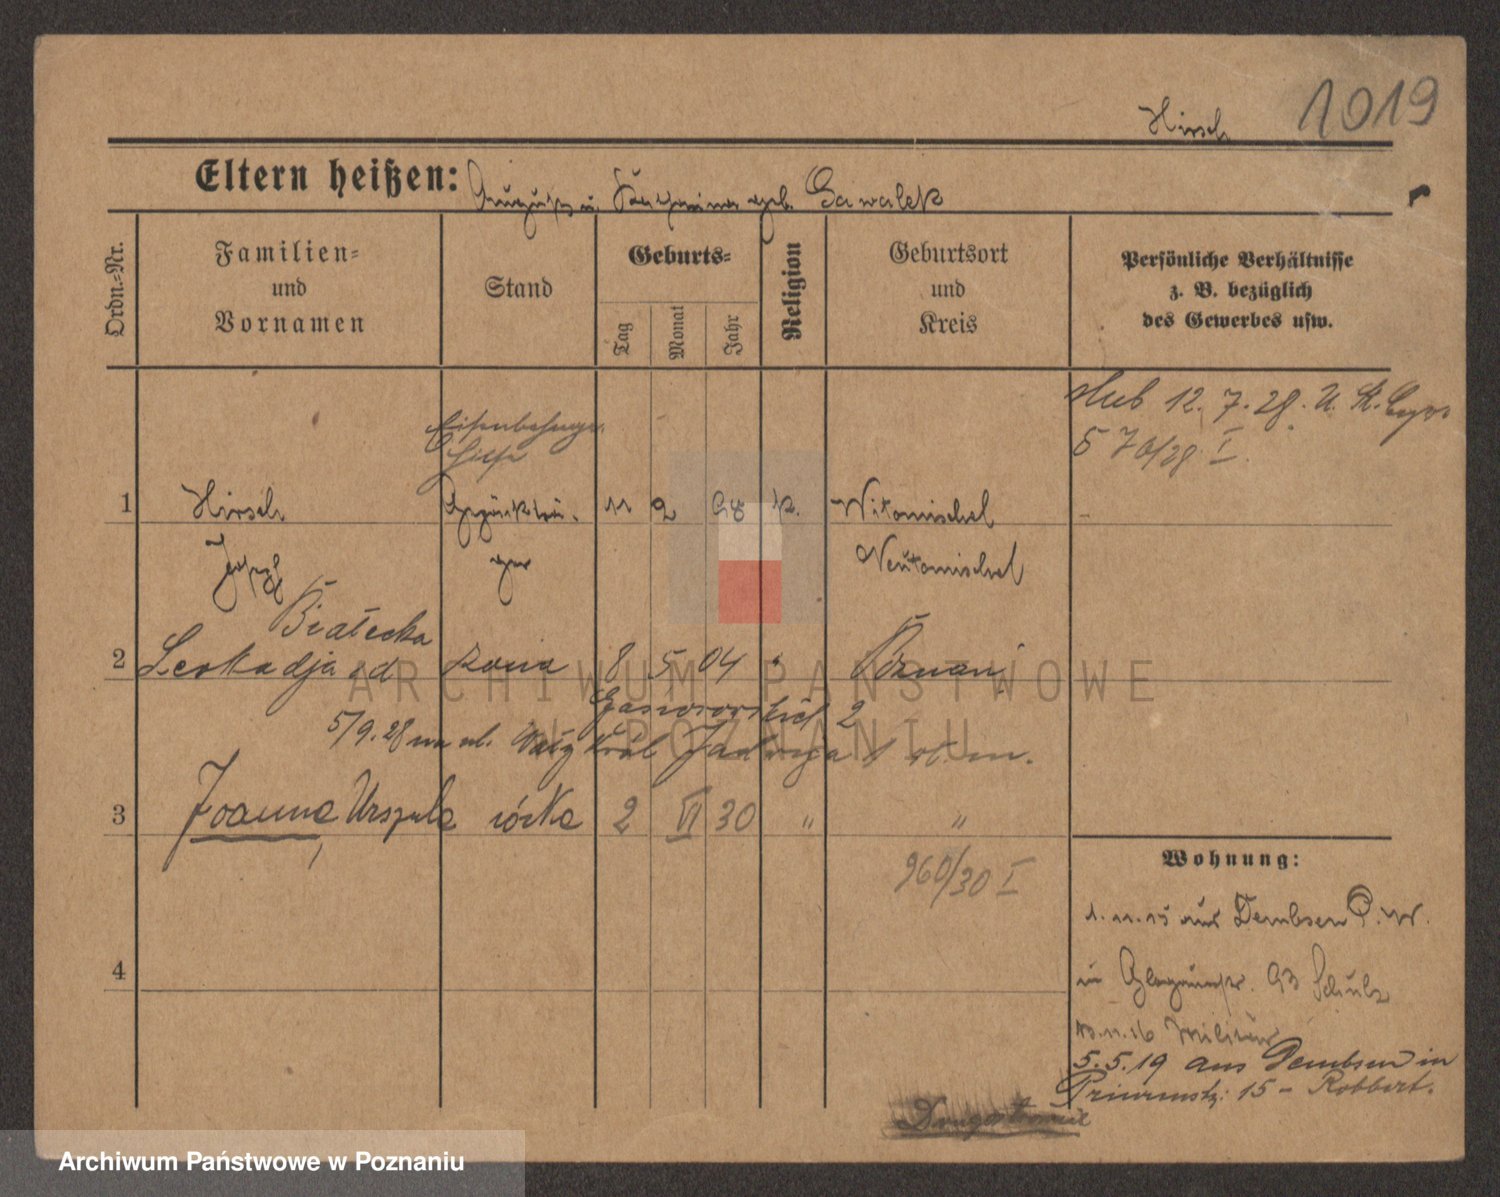 Hirsch 1019
Eltern heißen: August u. geb. Gawalek
Ordn.=Nr.
Familien=
und
Vornamen
Stand
Geburts=
Tag
Monat
Jahr
Religion
Geburtsort
und
Kreis
Persönliche Verhältnisse
z. B. bezüglich
des Gewerbes usw.
12. 7. 28.
570/28 I.
1 Hirsch 11 2 98 k. Witomischel
Josef Neutomischel
Białecka
2 Leokadja żona 8 5 04 " Poznań
Gąsiorowskich 2
5/9.28 na ul. Wały Król Jadwiga
3 Joanna Urszula córka 2 VI 30 " "
960/30 I
4
Wohnung:
1. 11. 15 aus Dembsen P. W.
in 93 Schulz
11. 16 Militär
5. 5. 19 aus Dembsen in
15 - Robbert.
ARCHIWUM PAŃSTWOWE
W POZNANIU
Archiwum Państwowe w Poznaniu